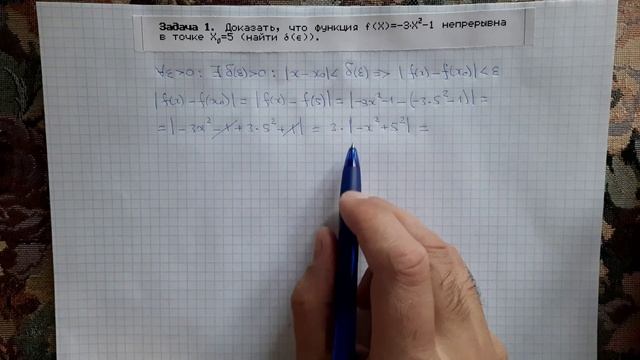 Задача 1. Доказать, что функция f(X)=-3·X²-1 непрерывна
в точке X₀=5 (найти δ(ε)).
∀ε>0: ∃ δ(ε)>0: |x-x₀|< δ(ε) => |f(x)-f(x₀)|<ε
|f(x)-f(x₀)| = |f(x)-f(5)| = |-3x²-1-(-3·5²-1)| =
= |-3x²-1+3·5²+1| = 3·|-x²+5²| =